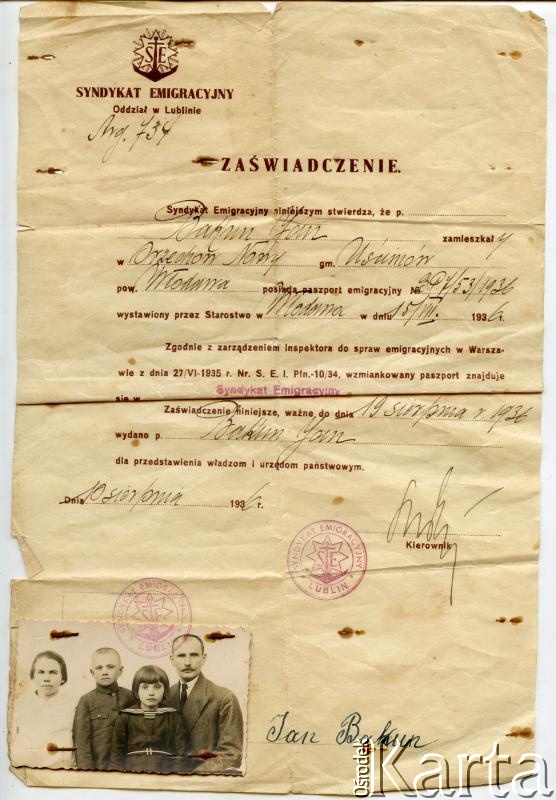 SE
SYNDYKAT EMIGRACYJNY
Oddział w Lublinie
734
ZAŚWIADCZENIE.
Syndykat Emigracyjny niniejszym stwierdza, że p.
Bakun Jan zamieszkały
w Orzechów Nowy gm. Uścimów
pow. Włodawa posiada paszport emigracyjny № /53/1936
wystawiony przez Starostwo w Włodawa w dniu 15/VII. 1936 r.
Zgodnie z zarządzeniem inspektora do spraw emigracyjnych w Warsza-
wie z dnia 27/VI-1935 r. Nr. S. E. I. Pfn.-10/34, wzmiankowany paszport znajduje
Syndykat Emigracyjny
się w
Zaświadczenie niniejsze, ważne do dnia 19 sierpnia r. 1936
wydano p. Bakun Jan
dla przedstawienia władzom i urzędom państwowym.
Dnia 10 sierpnia 1936 r.
Kierownik
SYNDYKAT EMIGRACYJNY
SE
LUBLIN
SYNDYKAT EMIGRACYJNY
SE
LUBLIN
Jan Bakun
Ośrodek
Karta